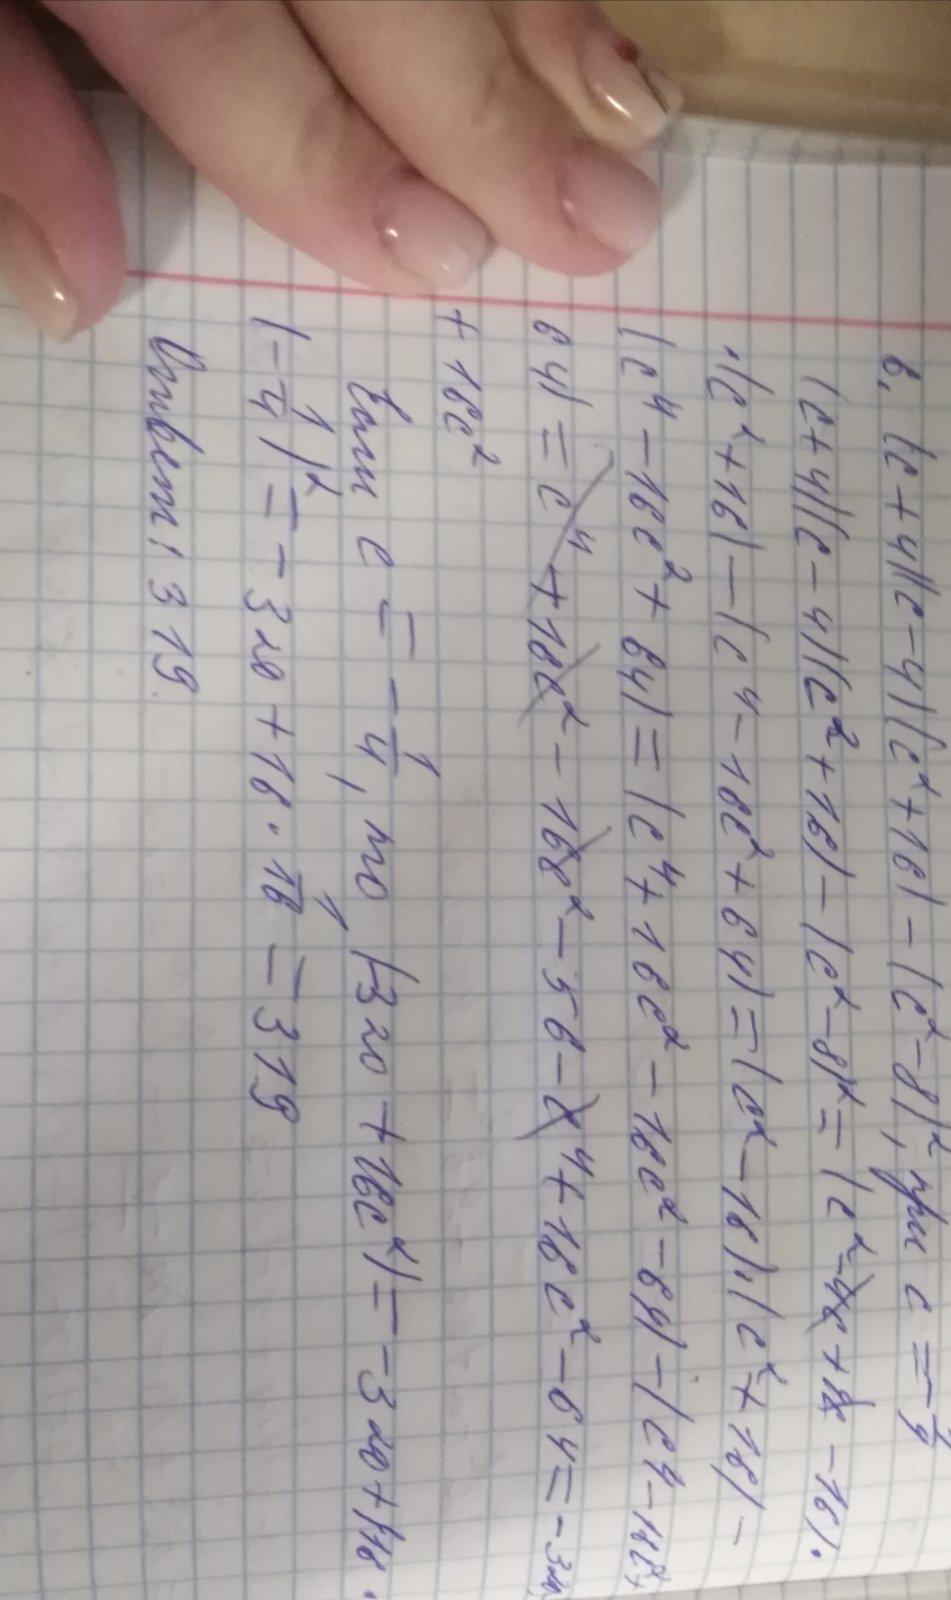 в. (c+4)(c-4)(c²+16)-(c²-8)², при c=-1/4
(c+4)(c-4)(c²+16)-(c²-8)²=(c²-4c+4c-16)·
·(c²+16)-(c⁴-16c²+64)=(c²-16)·(c²+16)-
(c⁴-16c²+64)=(c⁴+16c²-16c²-64)-(c⁴-16c²+
64)=c⁴+16c²-16c²-56-c⁴+16c²-64=-320
+16c²
Если c=-1/4, то, (320+16c²)=-320+(16·
(-1/4)²=-320+16·1/16=319
Ответ: 319